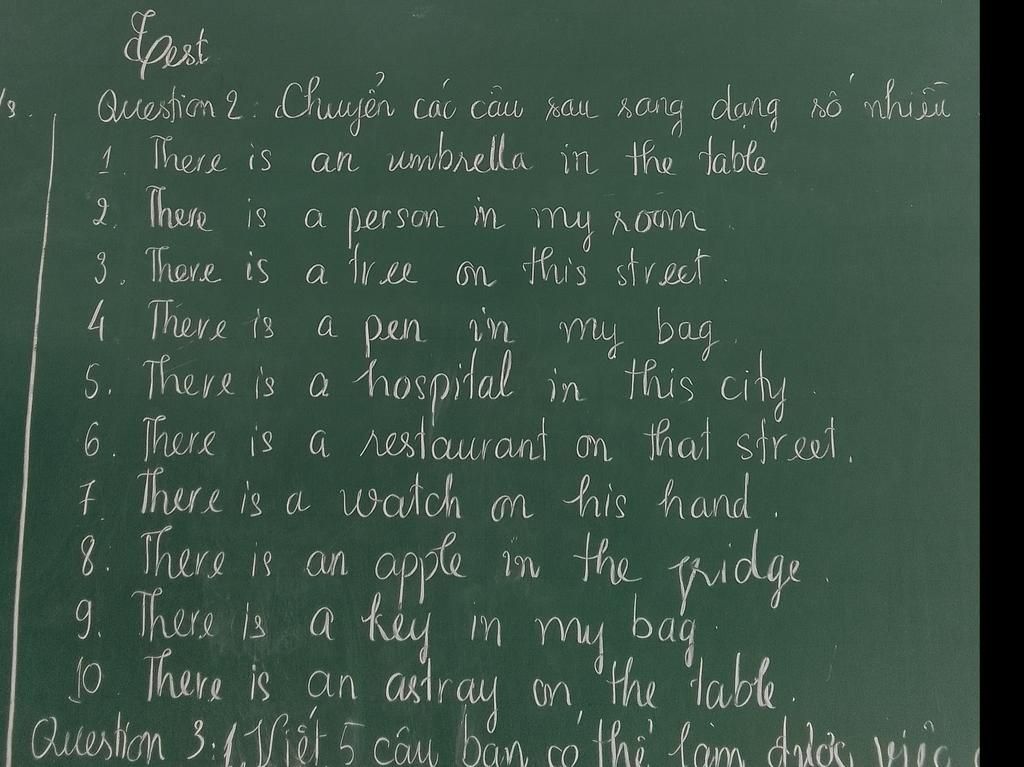 Test
Question 2: Chuyển các câu sau sang dạng số nhiều
1. There is an umbrella in the table
2. There is a person in my room
3. There is a tree on this street.
4 There is a pen in my bag.
5. There is a hospital in this city.
6. There is a restaurant on that street.
7. There is a watch on his hand.
8. There is an apple in the fridge.
9. There is a key in my bag.
10 There is an astray on the table.
Question 3: 1, Viết 5 câu bạn có thể làm được việc